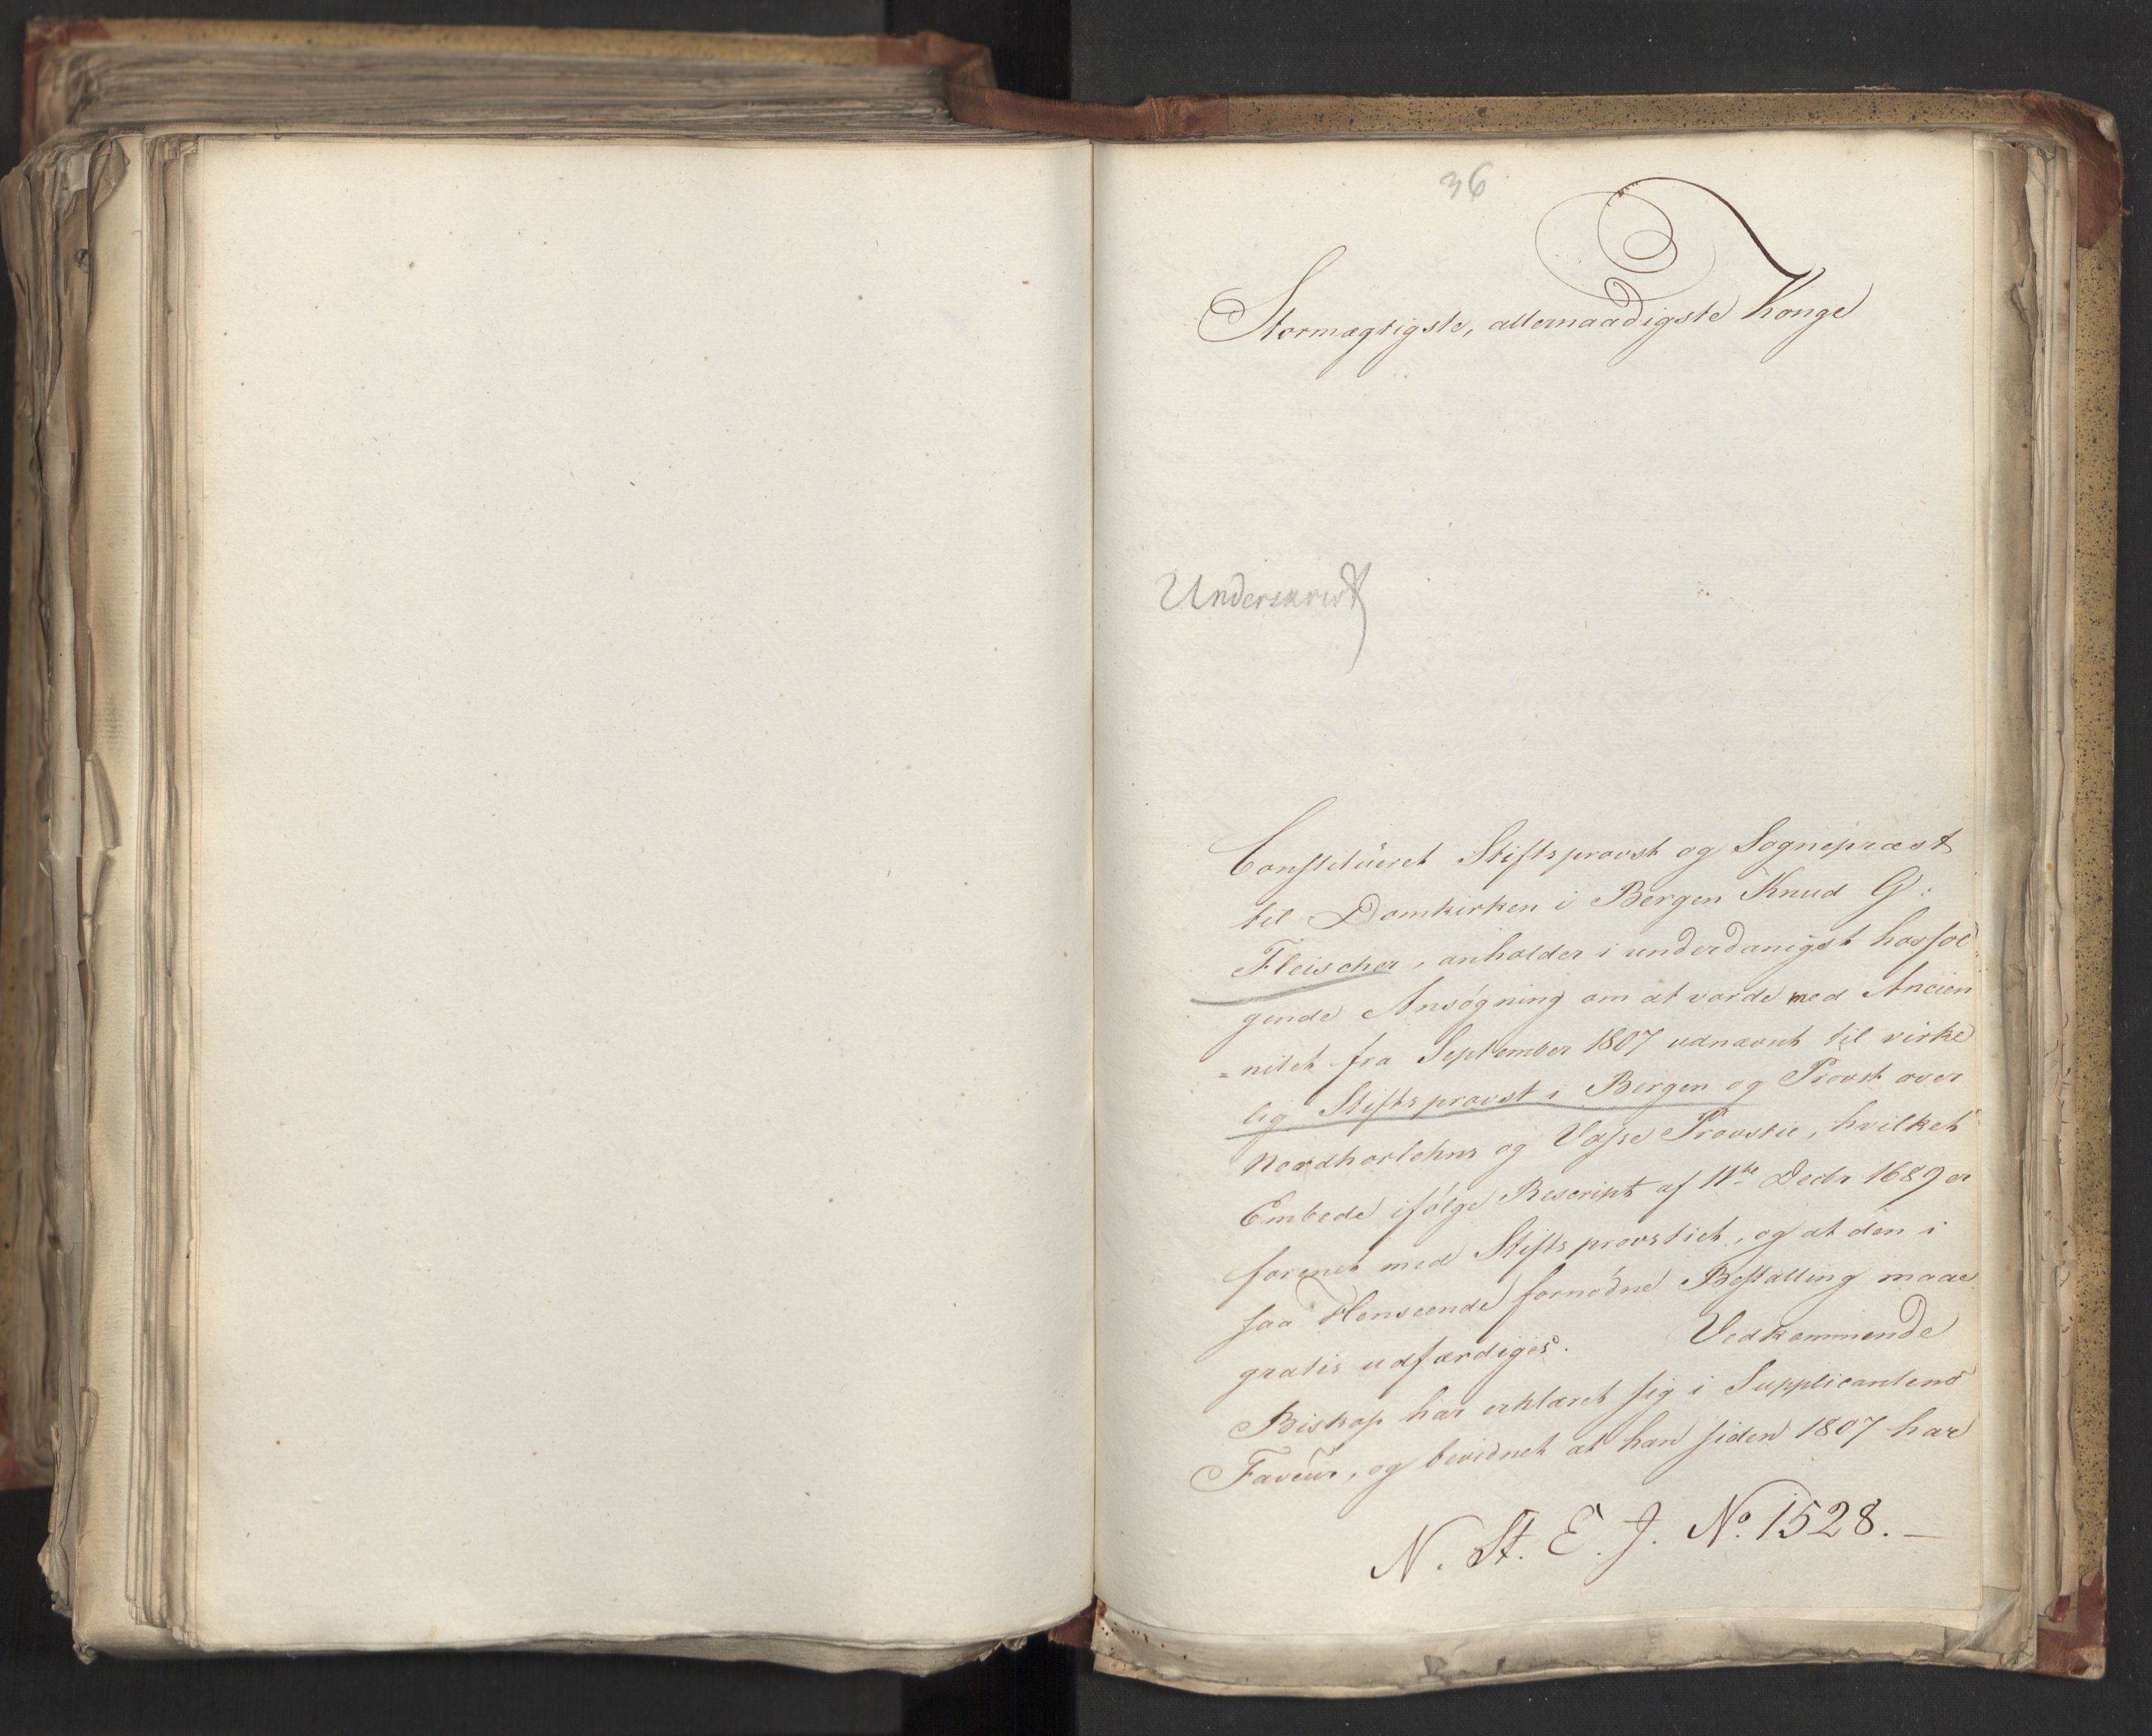 36
Stormægtigste, allernaadigste Konge
Underskrivt
Constitüeret Stiftsprovst og Sognepræst
til Domkirken i Bergen Knud G:
Fleischer, anholder i underdanigst hosføl
gende Ansøgning om at vorde med Ancien
=nitet fra September 1807 udnævnt til virke
lig Stiftsprovst i Bergen og Provst over
Nordhorlehns og Vosse Provstie, hvilket
Embede ifølge Rescript af 11te Decbr 1689 er
forenet med Stiftsprovstiet, og at den i
saa Henseende fornødne Bestalling maae
gratis udfærdiges. Vedkommende
Biskop har erklæret sig i Supplicantens
Faveur, og bevidnet at han siden 1807 har
N. St. E. J. No. 1528.—